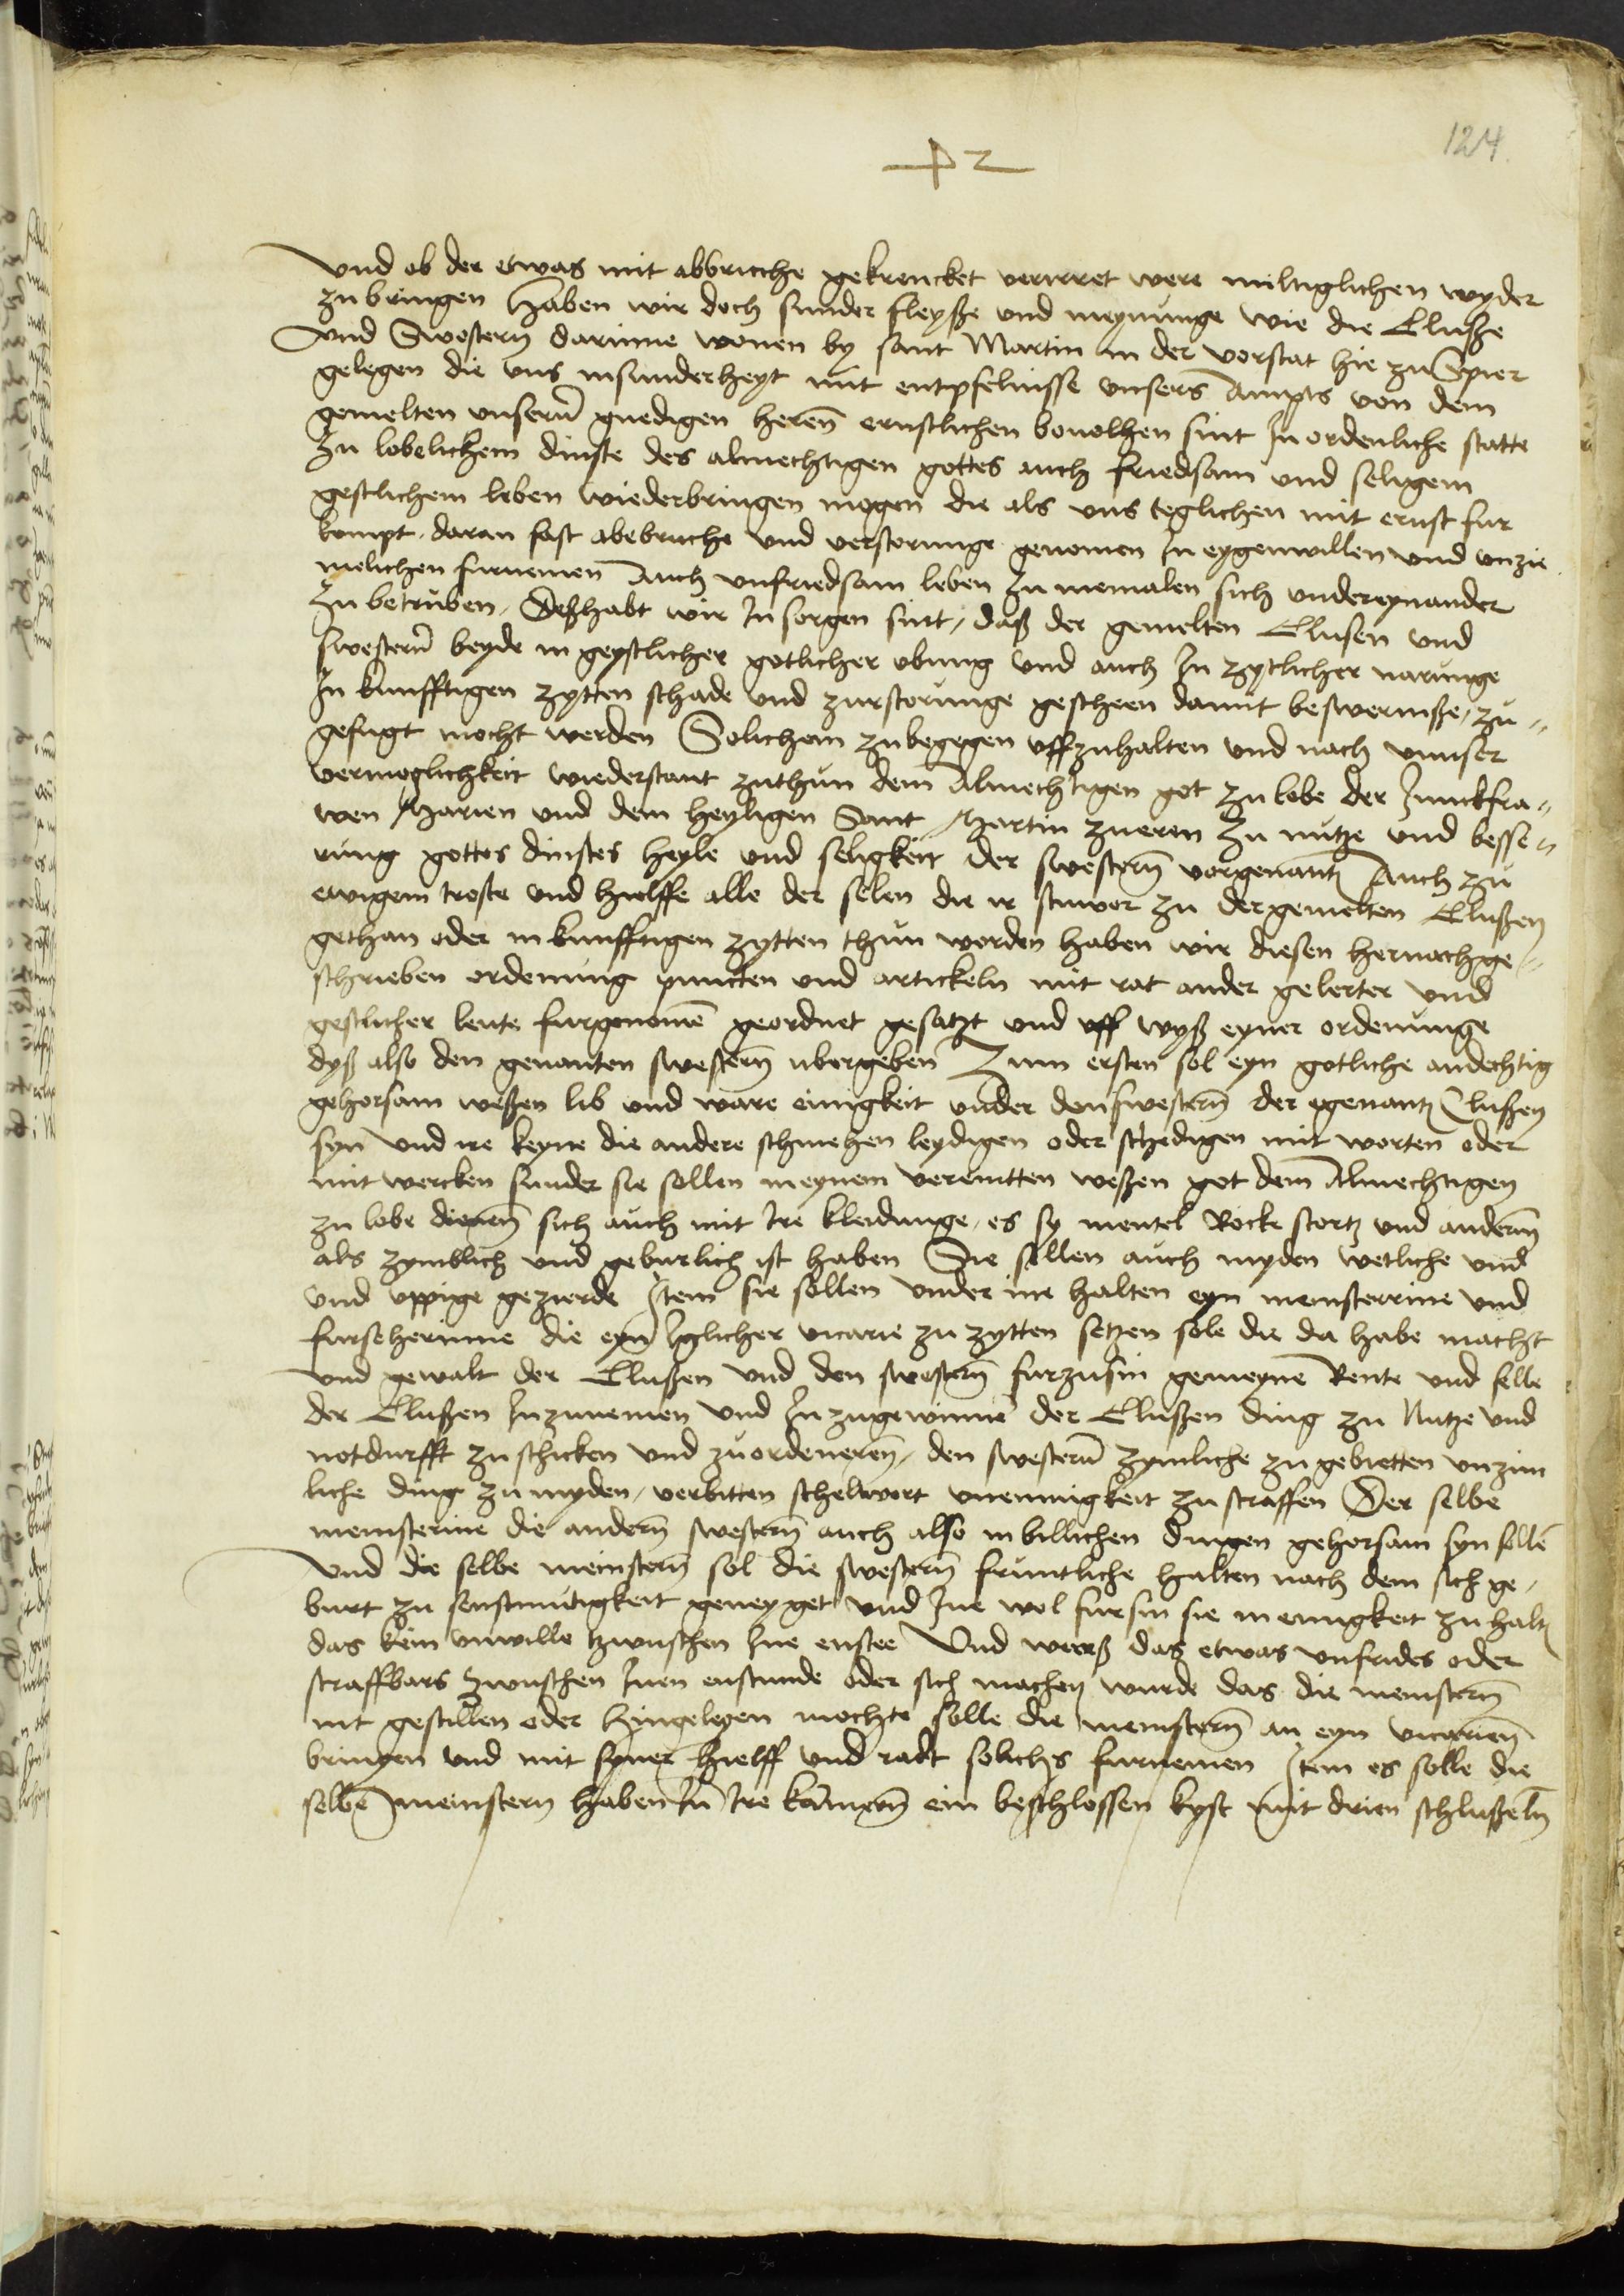 124
und ob der etwas mit abbruche gekrencket verirret were miltiglichen wyder
zu bringen Haben wir doch sunder fleysße und meynunge wie die Clusße
und Swestern darinne wonen by sant Martin in der vorstat hie zu Spier
gelegen die uns insunderheyt mit entpfelnisse unsers Ampts von dem
gemelten unserm gnedigen heren ernstlichen bevolhen sint In ordenliche statte
zu lobelichem dinste des almechtigen gottes auch friedsam und seligem
gestlichem leben wiederbringen mogen die als uns teglichen mit ernst fur
kompt. daran fast abebruche und verstorunge genomen In eygenwillen und unzie
melichen furnemen Auch unfriedsam leben zu memalen sich undereynander
zu betruben. Deßhabt wir In sorgen sint, daß der gemelten Clusen und
swestern beyde in geystlicher gotlicher ubung und auch In zytlicher narunge
In kunfftigen zytten schade und zurstorunge gescheen damit beswerniße, zu
gefugt mocht werden Solichem zubegegen uffzuhalten und nach unnser
vermoglichkeit wiederstant zuthun dem Almechtigen got zu lobe der Junckfra
wen Marien und dem heyligen Sant Martin zu eren zu nutze und besse
rung gottes dinstes heyle und seligkeit der swestern vorgenant Auch zu
ewigem troste und hielffe alle der selen die ir stuwer zu der gemelten Clußen
gethan oder in kunfftigen zytten thun werden haben wir diesen hernachge
schrieben ordenung puncten und artickeln mit rat ander gelerter und
gestlicher leute furgenomen geordnet gesatzt und uff wyß eyner ordenunge
dyß also den genanten swestern ubergeben Zum ersten sol eyn gotliche andechtig
gehorsam weßen lib und ware einigkeit under den swestern der egenant Clußen
syn und ire keyne die andere schmehen leydigen oder schedigen mit worten oder
mit wercken sunder sie sollen in eynem vereintten weßen got dem Almechtigen
zu lobe dienen sich auch mit Ire kleidunge, es sy mentel Rocke stortz und anderm
als zymblich und geburlich ist haben Sie sollen auch myden wetliche und
und uppige gezierde Item sie sollen under ine halten eyn meinsterrine und
furseherinne die eyn Iglicher vicarie zu zytten setzen sole die da habe macht
und gewalt der Clußen und den swestern furzusin gemeyne Rente und felle
der Clußen Inzunemen und Inzugewinne der Clußen ding zu Nutze und
notdurfft zu schicken und zuordeneren, den swestern zymliche zu gebietten unzim
liche ding zu myden, verbitten scheltwort uneinigkeit zu straffen Der selbe
meinsterine die andern swestern auch also in billichen dingen gehorsam syn sollen
Und die selbe meinstern sol die swestern fruntliche halten nach dem sich ge
burt zu senftmutigkeit geneyget und Ine wol fursin sie in einigkeit zu halt
das kein unwille tzwuschen Ine enstee Und weerß das etwas unfrides oder
straffbars zwuschen Inen enstunde oder sich machen wurde das die meinstern
nit gestillen oder hingelegen mochte solle die meinstern an eyn vicarien
bringen und mit syner hielff und radt solichs furnemen Item es solle die
selben meinstern haben In Ire kamern ein beschlossen kyst mit drien schlußeln